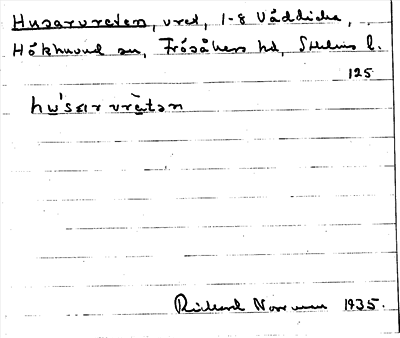 Husarvreten, vret, 1-8 Väddicka,
Häkhuvud sn, Frösåkers hd, Sthlms l.
125
hu̲'sar vrè̲tən
Rickard Norrman 1935.